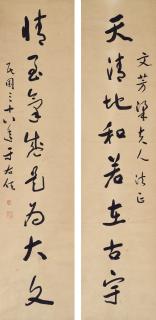 文芳梁夫人法正
天清地和若在古宇
情至氣盛是為大文
民國三十八年于右任